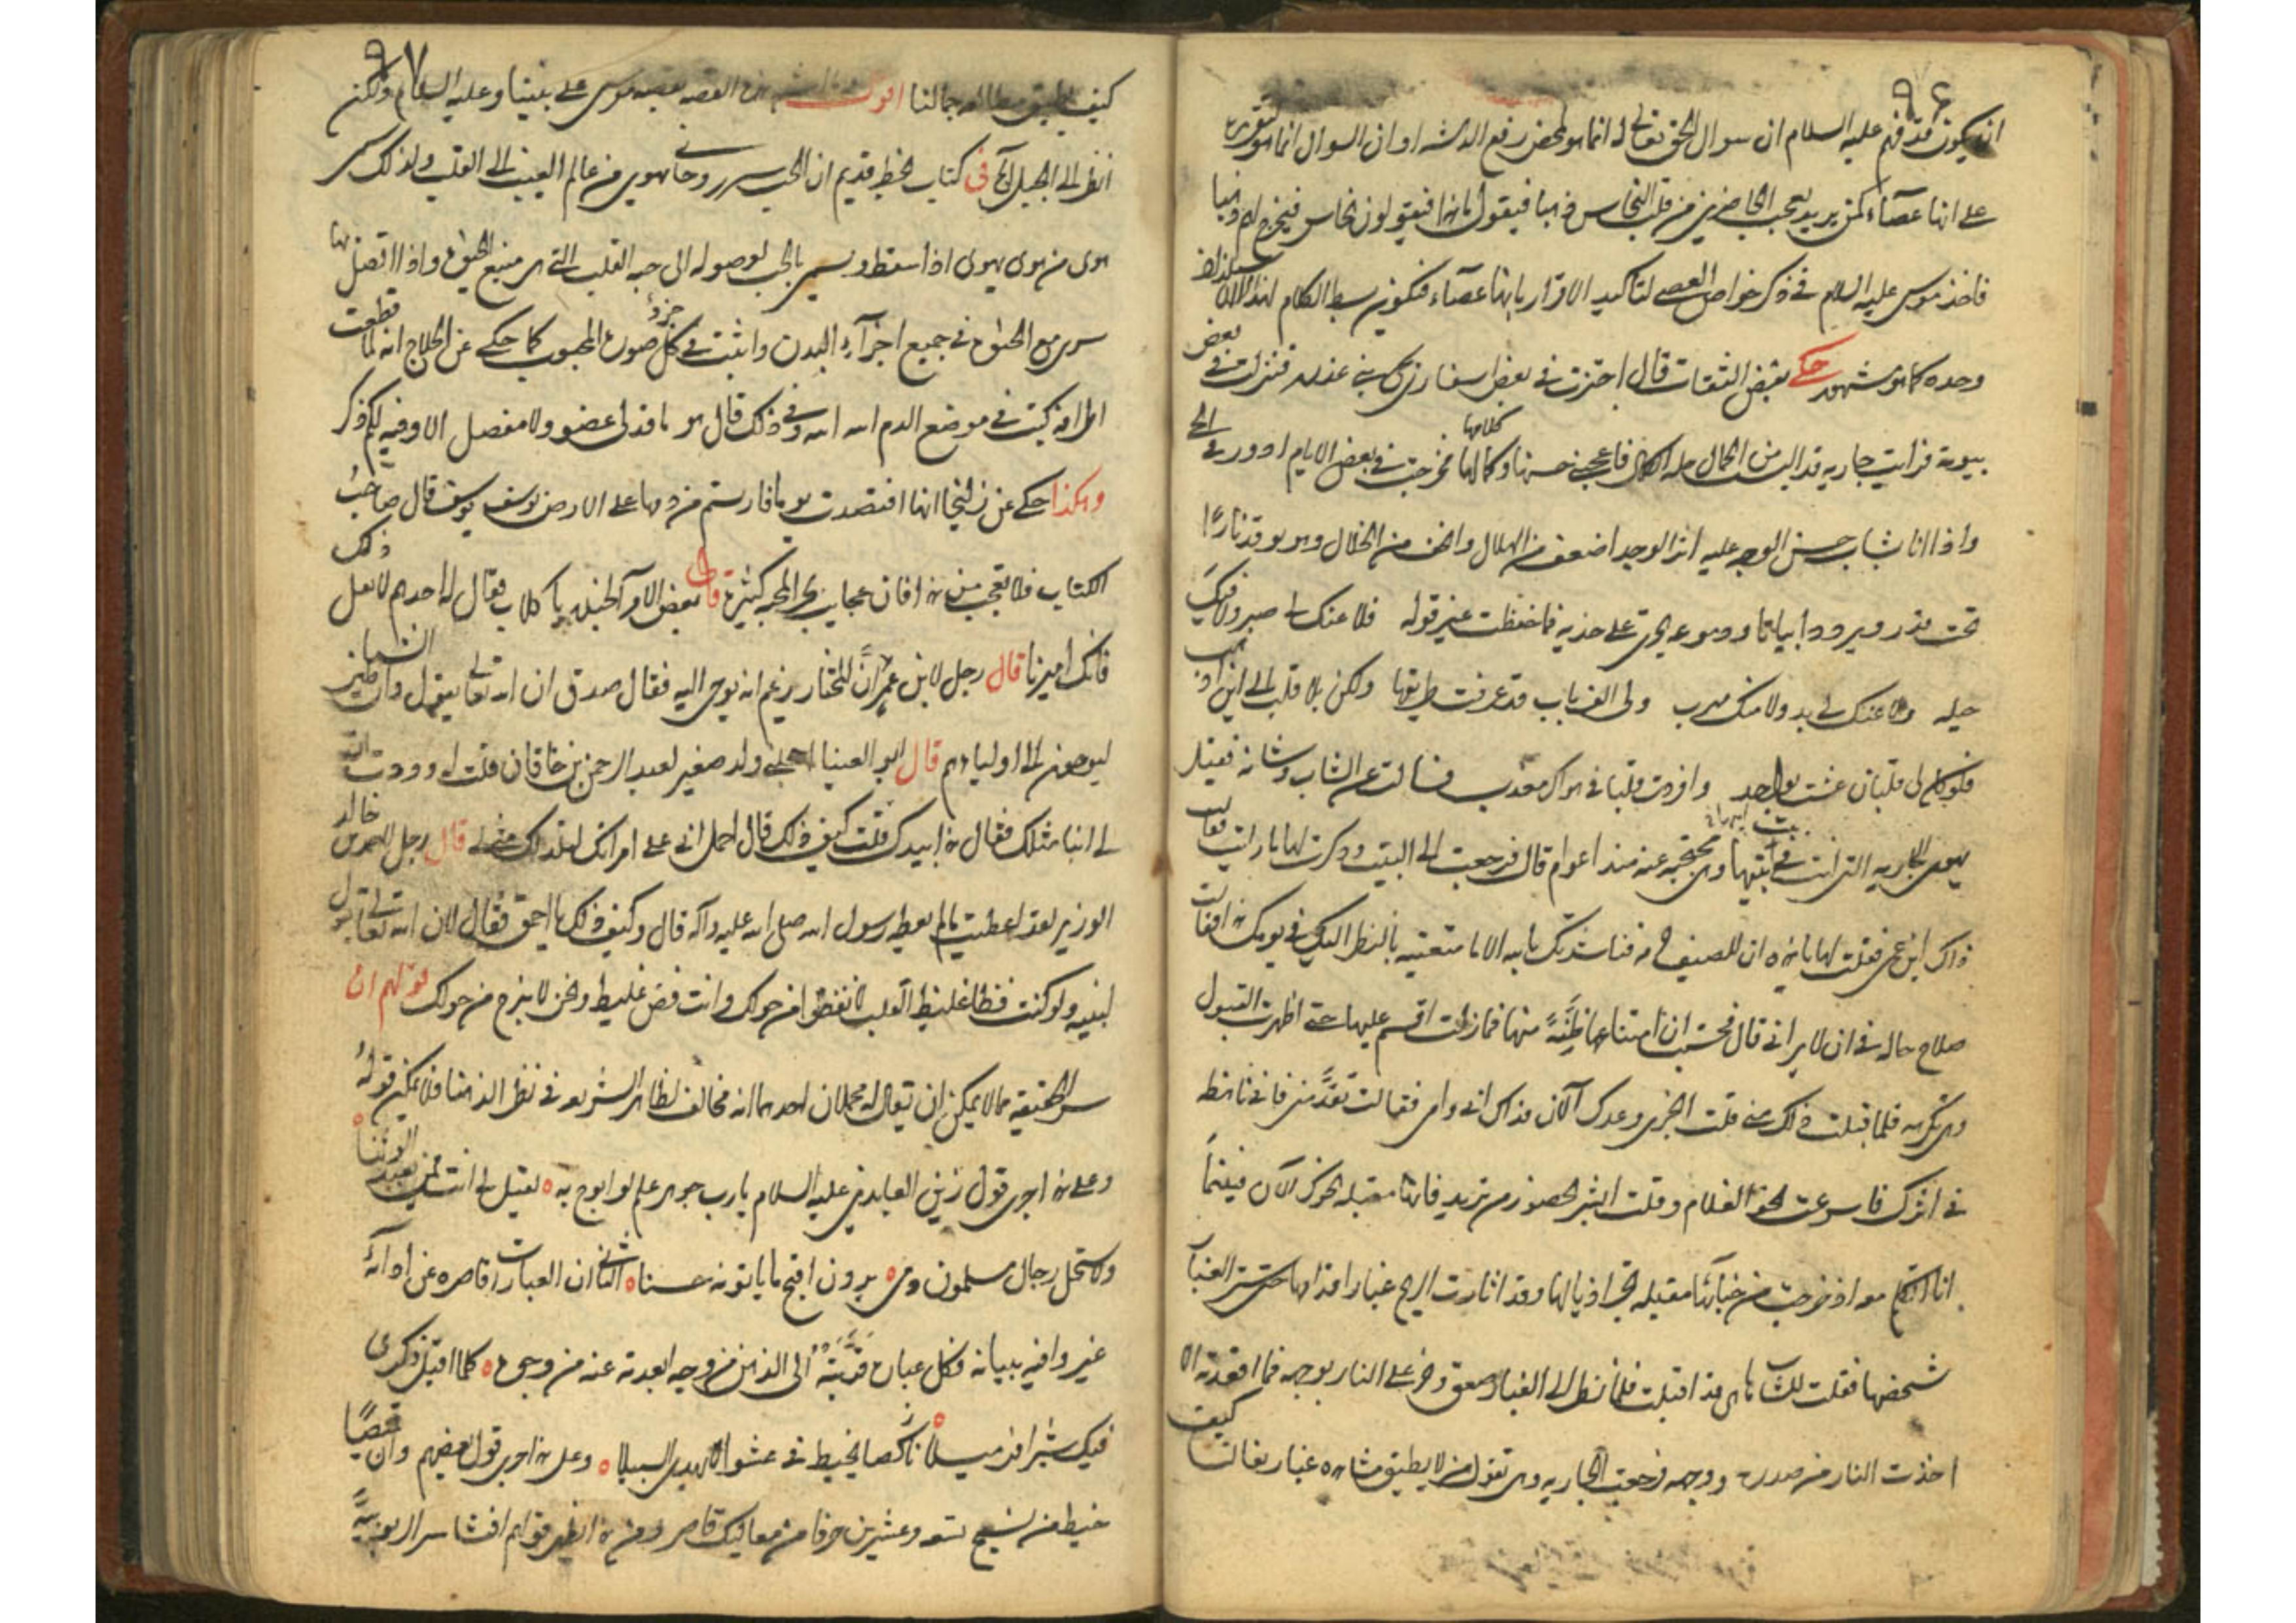 ٩٦
ان يكون قد فهم عليه السلام ان سوال الحق تعالى له انما هو لمحض رفع الدهشه او ان السوال انما هو لتقريره
على انها عصاء كمن يريد تعجب الحاضرين من قلب النحاس ذهبا فيقول ما هذا فيقولون نحاس فيخرج لهم ذهبا
فاخذ موسى عليه السلام في ذكر خواص العصى لتاكيد الاقرار بانها عصاء فيكون بسط الكلام لهذا لا للاستلذاذ
وحده كما هو مشهور حكى بعض الثقات قال اجتزت في بعض اسفارى بحى بنى عذره فنزلت فى بعض
بيوته فرايت جاريه قد البست من الجمال حلة الكمال فاعجبنى حسنها وكلامها فخرجت في بعض الايام ادور في الحى
واذا انا بشاب حسن الوجه عليه اثر الوجد اضعف من الهلال وانحف من الخلال وهو يوقد نارًا
تحت قدر ويردد ابياتا ودموعه تجرى على خديه فما حفظت غير قوله فلا عنك لى صبر ولا فيك
حيله ولا عنك لى بد ولا منك مهرب ولى الف باب قد عرفت طريقها ولكن بلا قلب الى اين اذهب
فلو كان لى قلبان عشت بواحد وافردت قلبا فى هواك معذب فسالت عن الشاب وشانه فقيل
يهوى الجاريه التى انت فى بيت ابيها وهى محتجبه عنه منذ اعوام قال فرجعت الى البيت وذكرت لها ما رايت فقالت
ذاك ابن عمى فقلت لها يا هذه ان للضيف حرمه فناشدتك بالله الا ما متعتيه بالنظر اليك فى يومك هذا فقالت
صلاح حاله فى ان لا يرانى قال فحسبت ان امتناعها ظِنَّةً منها فما زلت اقسم عليها حتى اظهرت القبول
وهى متكرهه فلما قبلت ذلك منى قلت انجزى وعدك الآن فداك ابى وامى فقالت تقدَّمنى فانى ناهضه
فى اثرك فاسرعت نحو الغلام وقلت ابشر بحضور من تريد فانها مقبله نحوك الآن فبينما
انا اتكلم معه اذ خرجت من خبائها مقبله تجر اذيالها وقد اثارت الريح غبار اقدامها حتى ستر الغبار
شخصها فقلت للشاب ها هى قد اقبلت فلما نظر الى الغبار صعق وخر على النار لوجهه فما اقعدته الا
اخذت النار من صدره ووجهه فرجعت الجاريه وهى تقول من لا يطيق مشاهده غبار نعالنا كيف
٩٧
كيف يطيق مطالعه جمالنا اقول هذه القصه قصه موسى على نبينا وعليه السلام ولكن
انظر الى الجبل الآيه فى كتاب بخط قديم ان الحب سر روحانى يهوى من عالم الغيب الى القلب ولذلك سمى
هوى من هوى يهوى اذا سقط ويسمى بالحب لوصوله الى حبه القلب التى هى منبع الحيوة واذا اتصل بها
سرى مع الحيوة فى جميع اجزآء البدن واثبت فى كل جزء صورة المحبوب كما حكى عن الحلاج انه لما قطعت
اطرافه كتب فى موضع الدم الله الله وفى ذلك قال هو ما قد لى عضو ولا مفصل الا وفيه لكم ذكر
وهكذا حكى عن زليخا انها افتصدت يوما فارتسم من دمها على الارض يوسف يوسف قال صاحب
الكتاب فلا تعجب من هذا فان عجايب بحر المحبه كثيرة قال بعض الامراء لجنده يا كلاب فقال له احدهم لا تقل ذلك
فانك اميرنا قال رجل لابن عمر ان المختار يزعم انه يوحى اليه فقال صدق ان الله تعالى يقول وان الشياطين
ليوحون الى اوليائهم قال ابو العينا اخجلنى ولد صغير لعبد الرحمن بن خاقان قلت له وددت ان
لى ابنا مثلك فقال هذا بيدك قلت كيف ذلك قال احمل ابى على امراتك تلد لك مثلى قال رجل لاحمد بن خالد
الوزير لقد اعطيت ما لم يعطه رسول الله صلى الله عليه وآله قال وكيف ذلك يا احمق فقال لان الله تعالى يقول
لنبيه ولو كنت فظا غليظ القلب لانفضوا من حولك وانت فض غليظ ونحن لا نبرح من حولك قولهم ان
سر الحقيقه مما لا يمكن ان يقال له محملان احدهما انه مخالف لظاهر الشريعه فى نظر العلماء فلا يمكن قوله
وعلى هذا جرى قول زين العابدين عليه السلام يا رب جوهر علم لو ابوح به لقيل لى انت ممن يعبد الوثنا
ولاستحل رجال مسلمون دمى يرون اقبح ما ياتونه حسنا الثانى ان العبارات قاصره عن ادآئه
غير وافيه ببيانه فكل عبارة قربته الى الذهن من وجه ابعدته عنه من وجوه كلما اقبل فكرى
فيك شبرا فر ميلا ناكصا يخبط فى عشواء لا يهدى السبيلا وعلى هذا جرى قول بعضهم وان قميصا
خيط من نسج تسعه وعشرين حرفا من معاليك قاصر ومن هذا يظهر قولهم افشاء سر الربوبيه